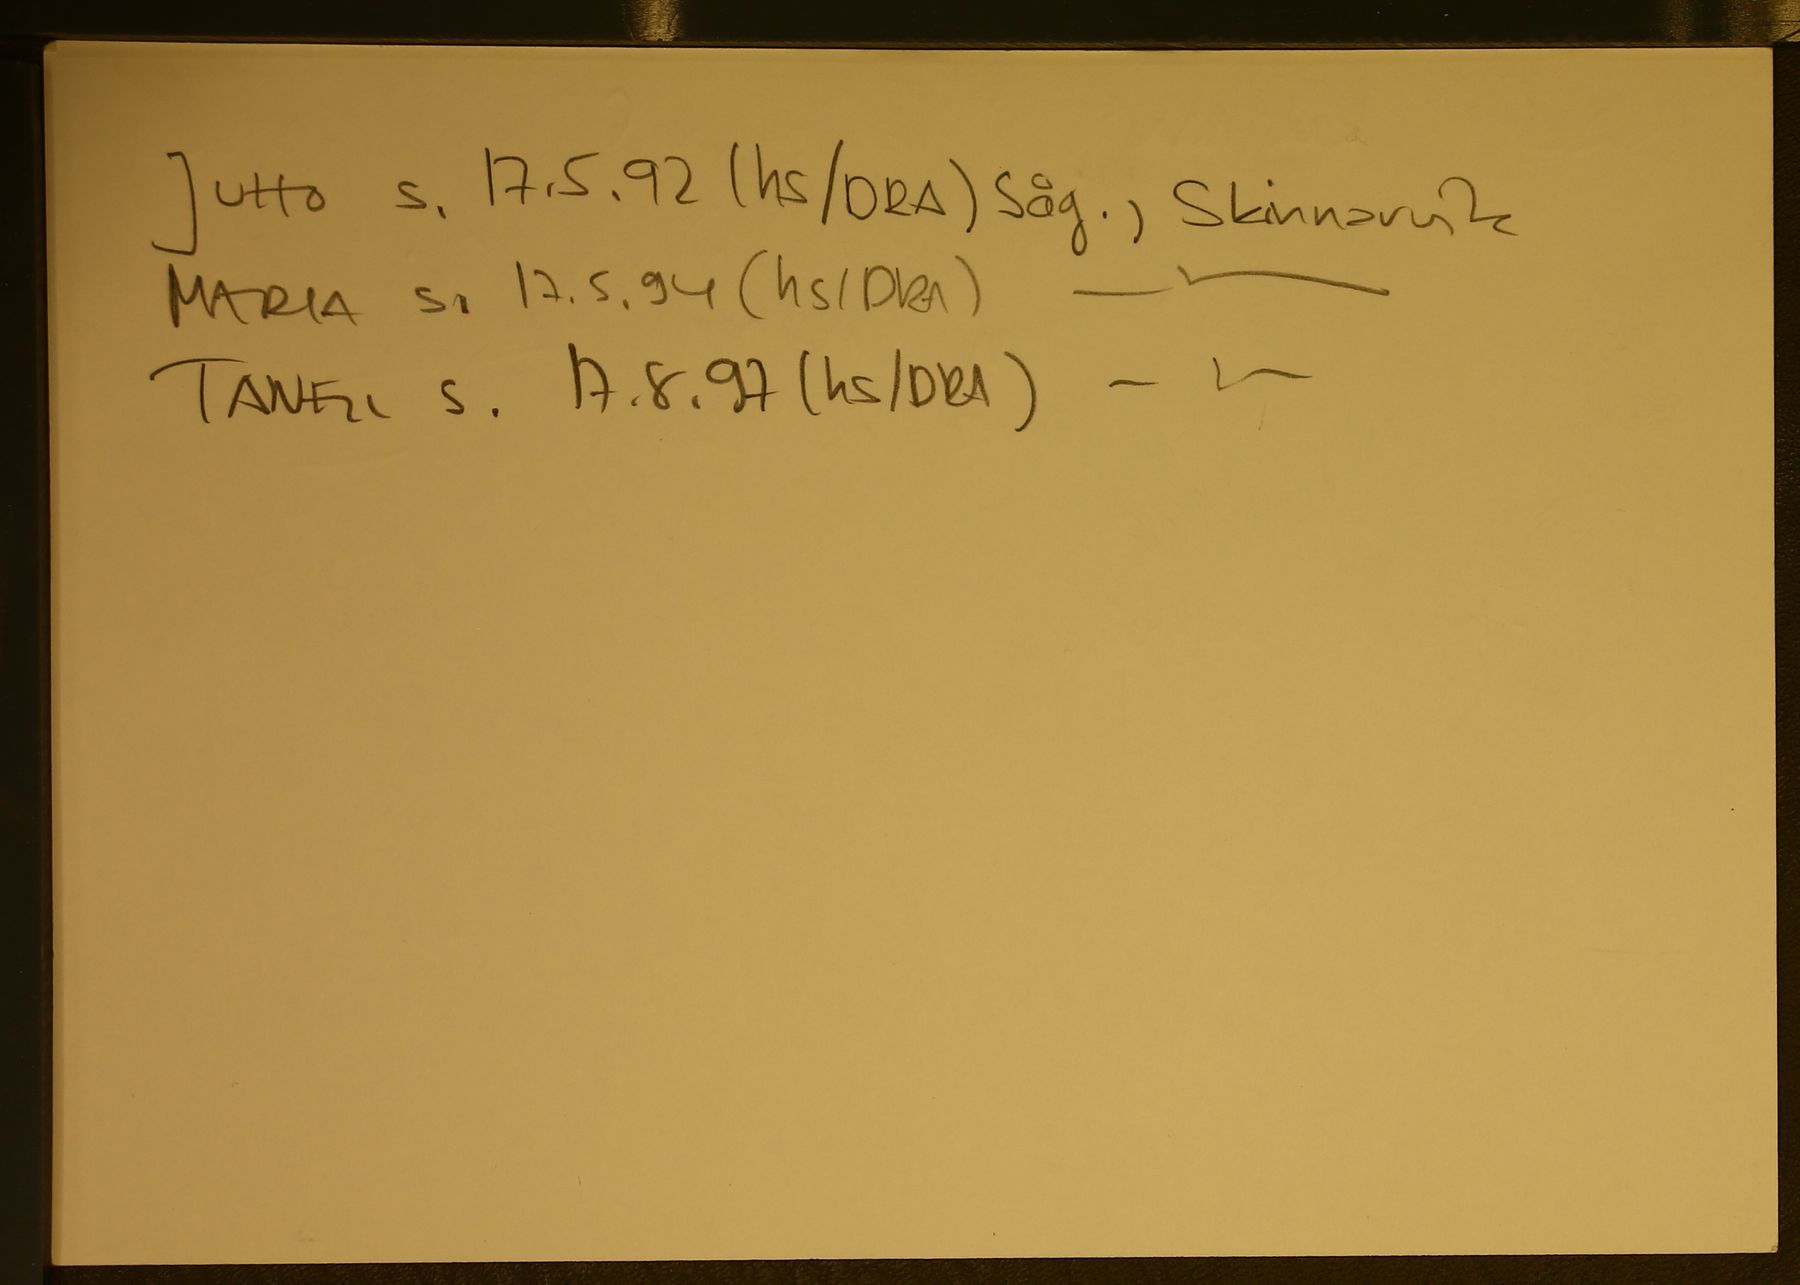 Jutta s. 17.5.92 (hs/DRA) Såg., Skinnarvik
MARIA s. 17.5.94 (hs/DRA) — —
TANELI s. 17.8.97 (hs/DRA) — —